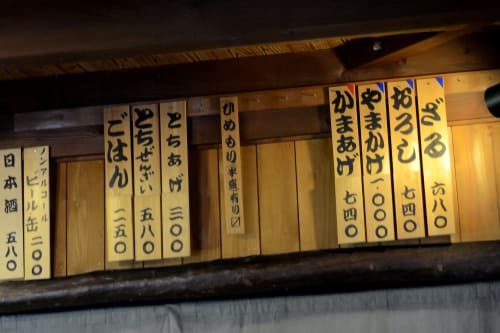 ざる 六八〇
おろし 七四〇
やまかけ 一〇〇〇
かまあげ 七四〇
ひめもり(半盛)有り〼
とちあげ 三〇〇
とちぜんざい 五八〇
ごはん 二五〇
ノンアルコール
ビール缶 二〇〇
日本酒 五八〇